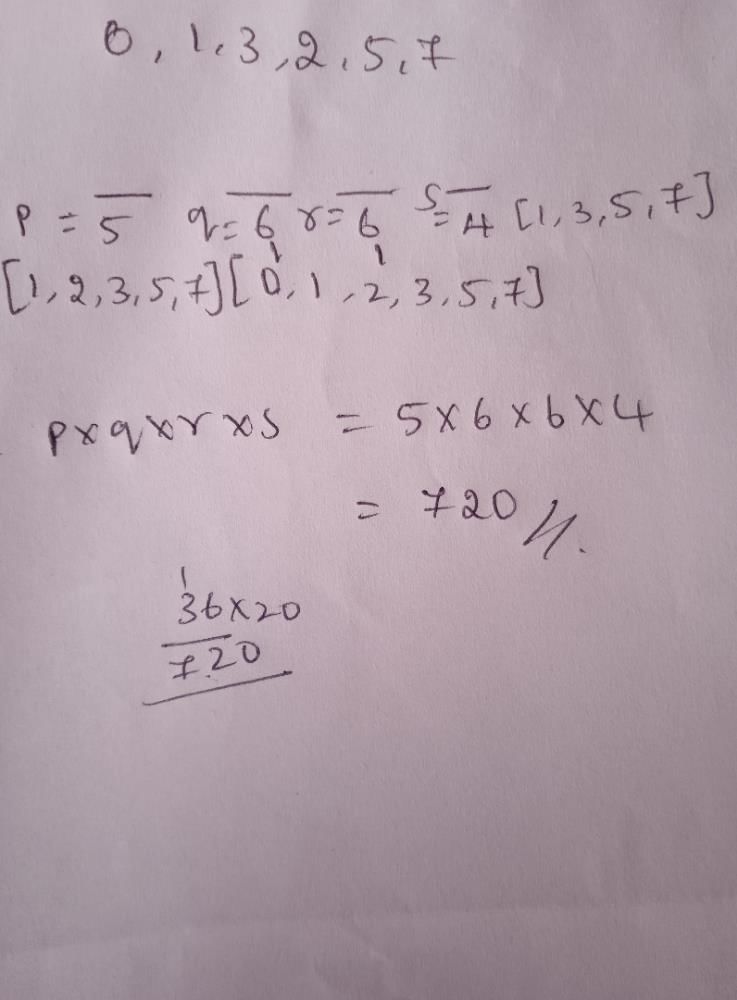 0, 1, 3, 2, 5, 7
p = 5 q = 6 r = 6 s = 4 [1, 3, 5, 7]
[1, 2, 3, 5, 7] [0, 1, 2, 3, 5, 7]
p×q×r×s = 5×6×6×4
= 720 //.
1
36×20
720